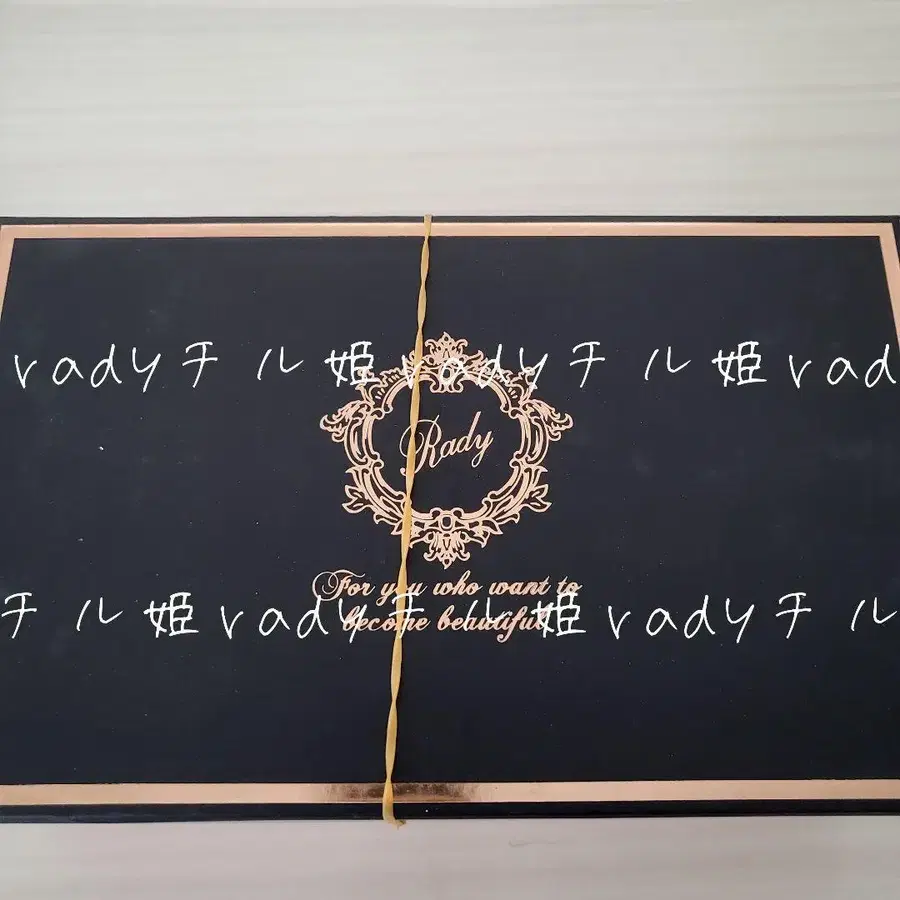 radyチル姫radyチル姫rad
Rady
For you who want to
チル姫radyチル姫radyチル
become beautiful